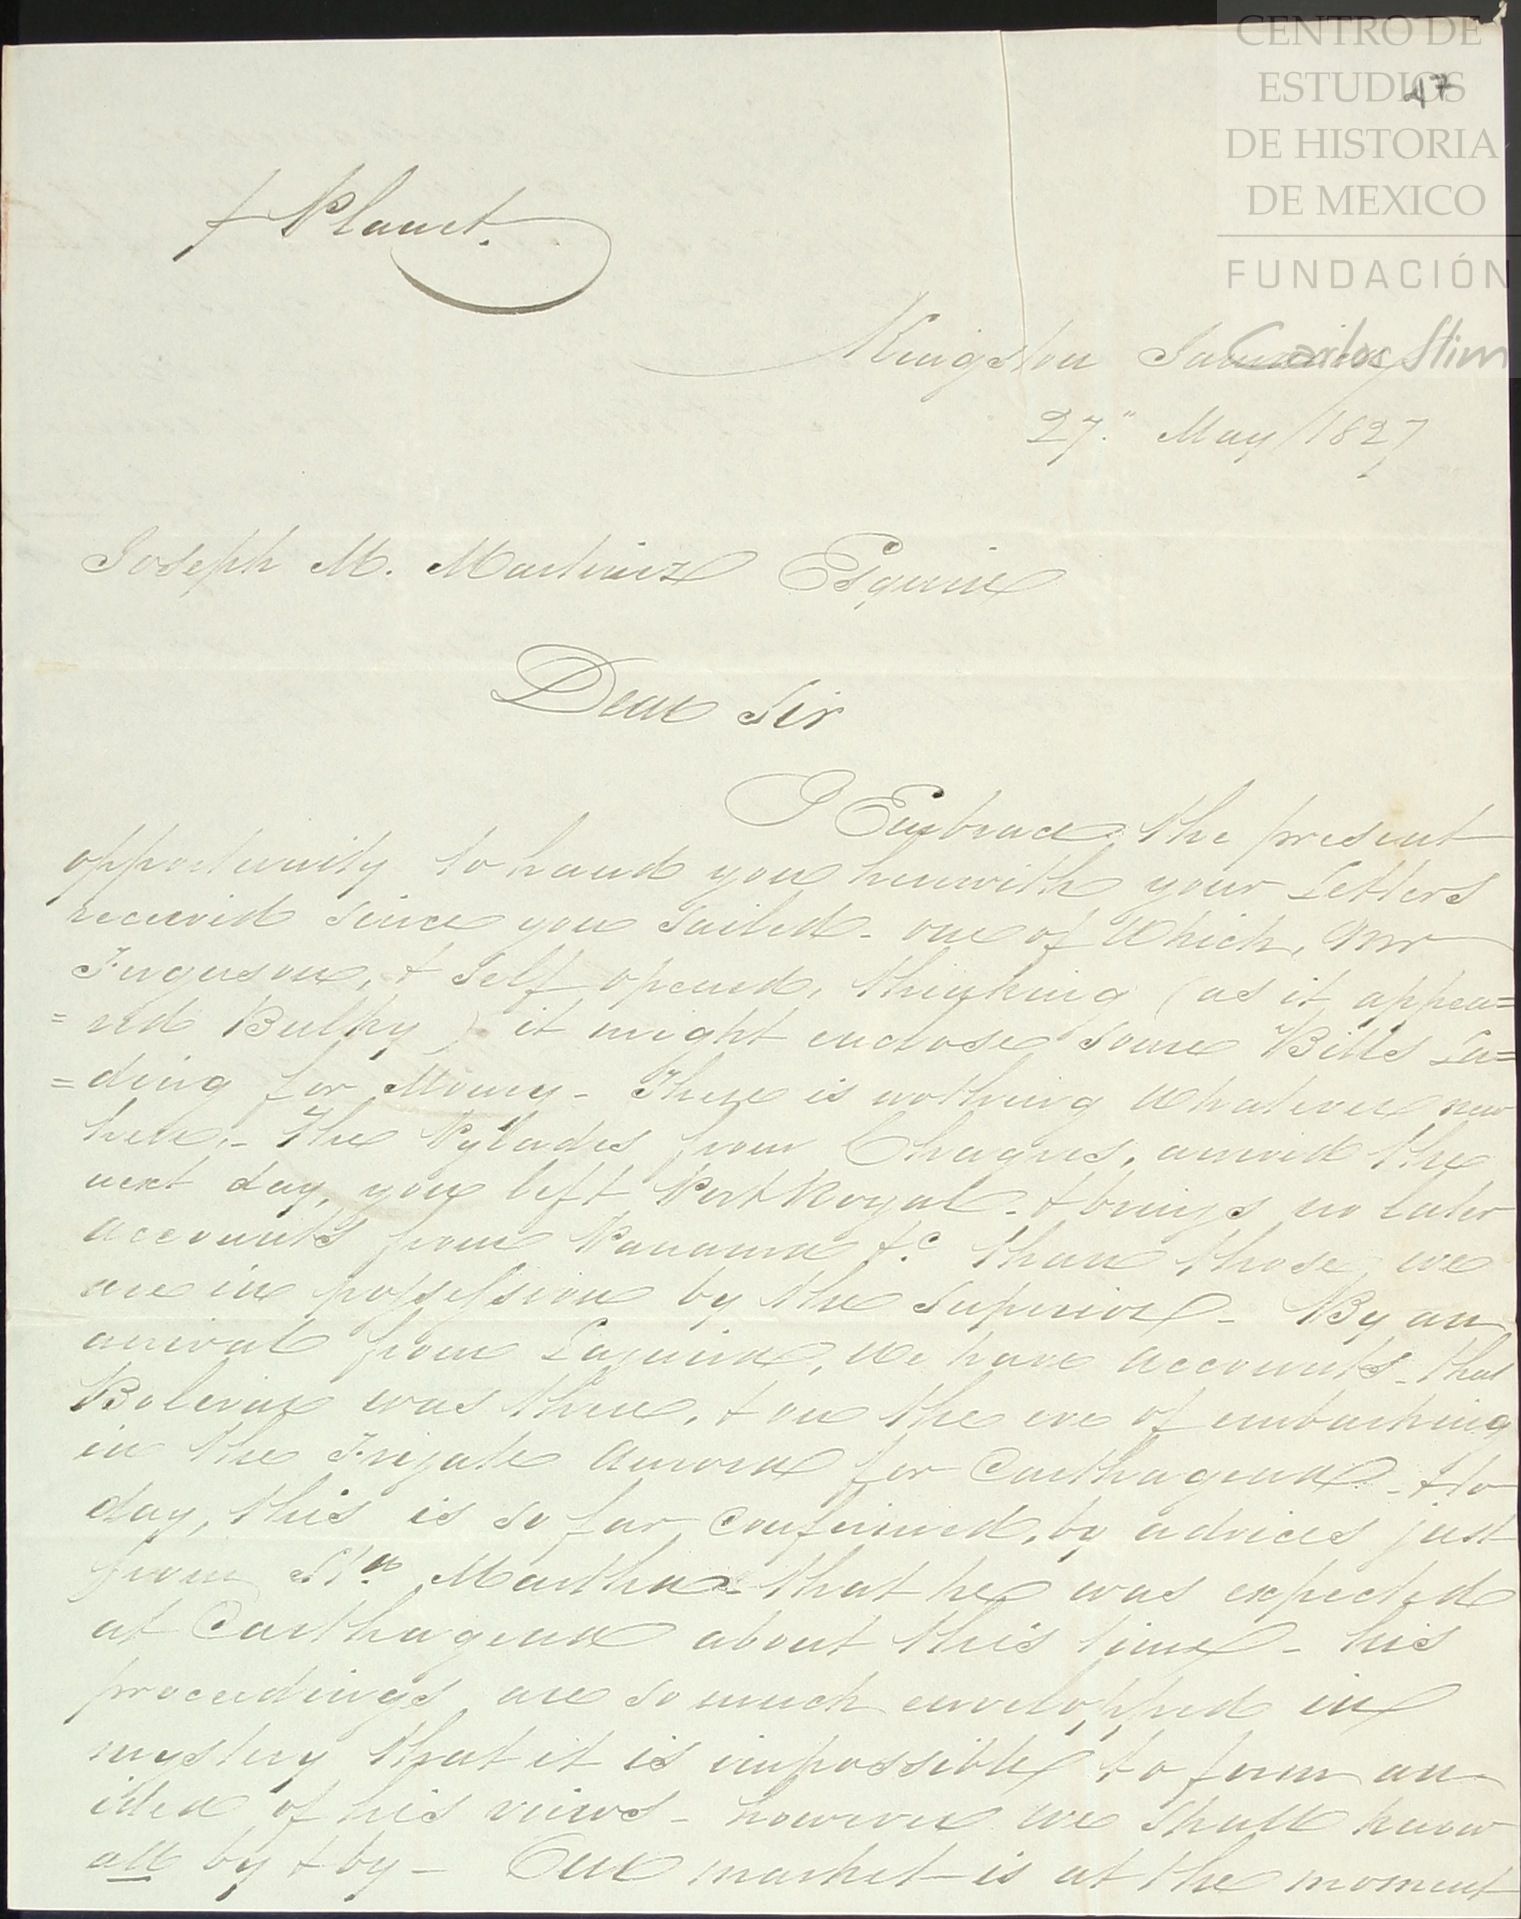 CENTRO DE
ESTUDIOS
DE HISTORIA
DE MEXICO
FUNDACIÓN
Carlos Slim
47
Planet.
Kingston Jamaica
27." May 1827
Joseph M. Martinez Esquire
Dear Sir
I Embrace the present
opportunity to hand you herewith your Letters
received since you sailed - one of Which, Mr
Ferguson, & self opened, thinking (as it appea=
=red Bulky) it might enclose some Bills La=
=ding for Money - There is nothing Whatever new
here, - The Pylades from Chagres, arrived the
next day, you left Port Royal - & brings no later
accounts from Panama &c than those we
are in possession by the Superior - By an
arrival from Laguira, We have accounts - that
Bolivar was there, & on the eve of embarking
in the Frigate Aurora for Carthagena - & to
day, this is so far confirmed, by advices just
from Sta Martha - that he was expected
at Carthagena about this time - his
proceedings are so much envelopped in
mystery that it is impossible to form an
idea of his views - however we shall know
all by & by - Our market is at the moment